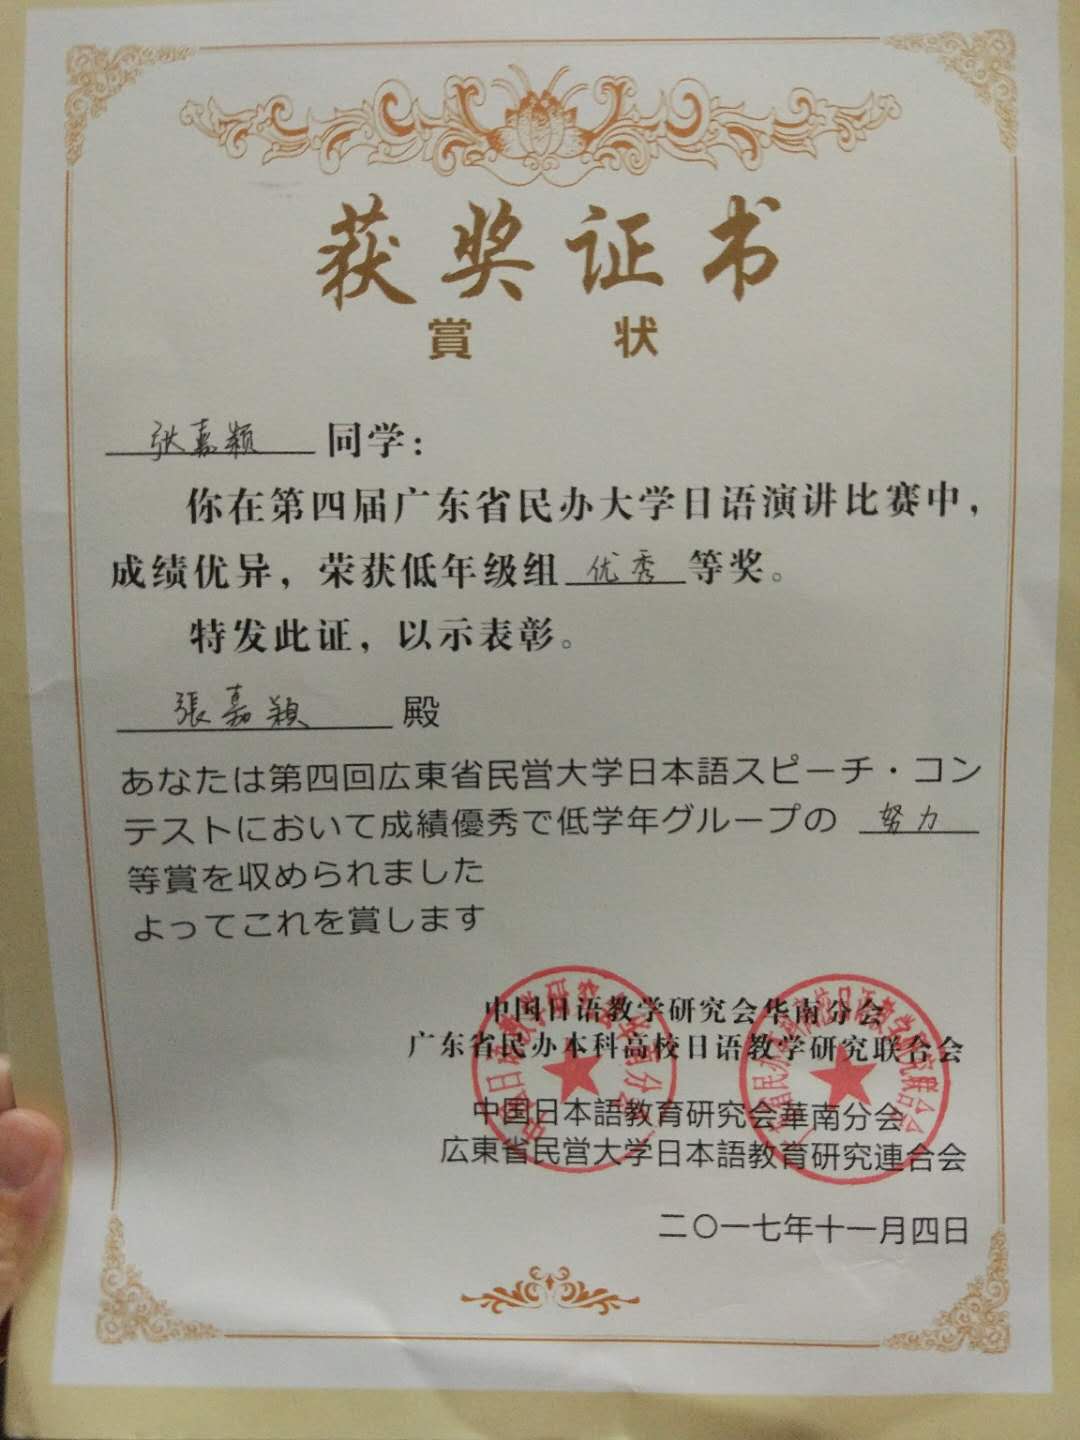 获奖证书
賞状
张嘉颖 同学：
你在第四届广东省民办大学日语演讲比赛中，
成绩优异，荣获低年级组优秀等奖。
特发此证，以示表彰。
張嘉穎 殿
あなたは第四回広東省民営大学日本語スピーチ・コン
テストにおいて成績優秀で低学年グループの 努力
等賞を収められました
よってこれを賞します
中国日语教学研究会华南分会
广东省民办本科高校日语教学研究联合会
中国日本語教育研究会華南分会
広東省民営大学日本語教育研究連合会
二〇一七年十一月四日